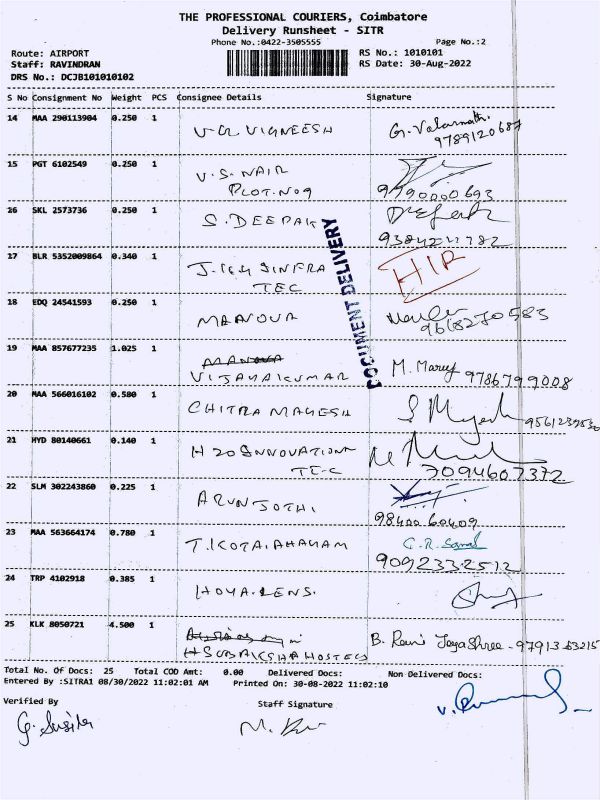 THE PROFESSIONAL COURIERS, Coimbatore
Delivery Runsheet - SITR
Phone No.:0422-3505555 Page No.:2
Route: AIRPORT RS No.: 1010101
Staff: RAVINDRAN RS Date: 30-Aug-2022
DRS No.: DCJB101010102
S No Consignment No Weight PCS Consignee Details Signature
14 MAA 290113904 0.250 1 V-R VIGNEESH G. Valarmathi
9789120687
15 PGT 6102549 0.250 1 V.S. NAIR
PLOT.NO9 9790000693
26 SKL 2573736 0.250 1 S.DEEPAK Deepak
17 BLR 5352009864 0.340 1 HIR
TEC
DOCUMENT DELIVERY
18 EDQ 24541593 0.250 1
9618270583
19 MAA 857677235 1.025 1 MANOVA
VIJAYAKUMAR M. Mary 9786799008
20 MAA 566016102 0.580 1 CHITRA MAGESH
21 HYD 80140661 0.140 1 H2O INNOVATION
TEC 7094607372
22 SLM 302243860 0.225 1 ARUN JOTHI
9840060409
23 MAA 563664174 0.780 1 T.KOTAIAHAYAM
9092332512
24 TRP 4102918 0.385 1 HOYA.LENS.
25 KLK 8050721 4.500 1 B. Rani Jayashree - 9791363215
HSUDAKSHA HOSTELS
Total No. Of Docs: 25 Total COD Amt: 0.00 Delivered Docs: Non Delivered Docs:
Entered By :SITRA1 08/30/2022 11:02:01 AM Printed On: 30-08-2022 11:02:10
Verified By Staff Signature
G. Susila